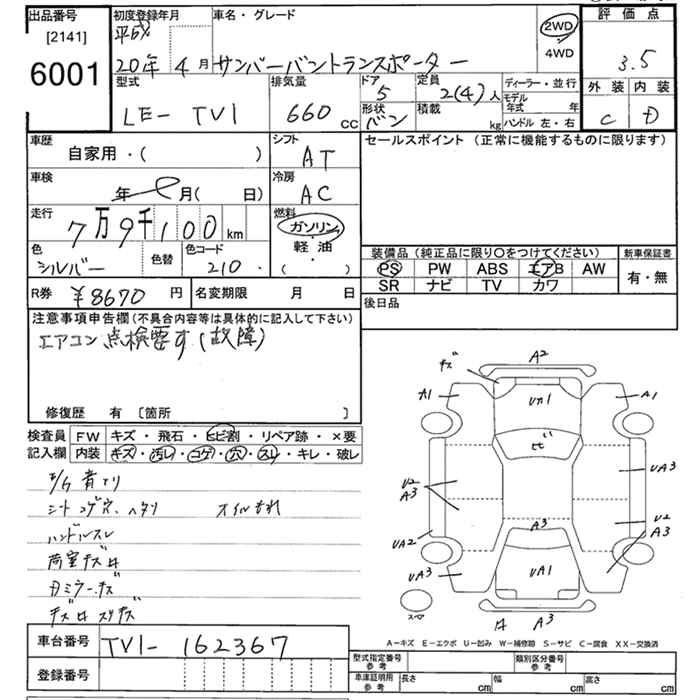 出品番号
[2141]
6001
初度登録年月
平成
20年 4月
車名・グレード
サンバーバントランスポーター
2WD
4WD
評価点
3.5
外装 内装
C D
型式
LE- TV1
排気量
660 cc
ドア
5
形状
バン
定員
2(4)人
積載
kg
ディーラー・並行
モデル年式 年
ハンドル 左・右
車歴
自家用・( )
シフト
AT
車検
年 月( 日)
冷房
AC
走行
7万9千100km
燃料
ガソリン
軽・油
・( )
色
シルバー
色替
色コード
210
R券 ¥8670 円
名変期限 月 日
セールスポイント (正常に機能するものに限ります)
装備品(純正品に限り〇をつけてください)
PS PW ABS エアB AW
SR ナビ TV カワ
新車保証書
有・無
後日品
注意事項申告欄(不具合内容等は具体的に記入して下さい)
エアコン点検要す(故障)
修復歴 有 [箇所 ]
検査員記入欄
FW キズ・飛石・ヒビ割・リペア跡・×要
内装 キズ・汚レ・コゲ・穴・スレ・キレ・破レ
シートコゲ穴、ヘタリ オイルもれ
ハンドルスレ
荷室キズ
キズ A2
A1 UA1 A1
ヒビ
U2 A3 UA3
A3 U2
UA2 A3
UA3 UA1
A3
A-キズ E-エクボ U-凹み W-補修跡 S-サビ C-腐食 XX-交換済
車台番号 TV1- 162367
登録番号
型式指定番号 参考
類別区分番号 参考
車庫証明用 参考
長さ cm 幅 cm 高さ cm